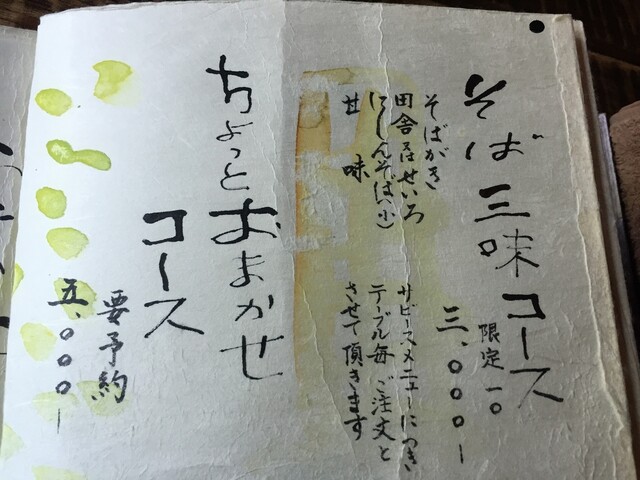 そば三味コース
限定一〇
三、〇〇〇ー
そばがき
田舎せいろ
にしんそば(小)
甘味
サービスメニューにつき
テーブル毎ご注文と
させて頂きます
ちょっとおまかせ
コース
要予約
五、〇〇〇ー